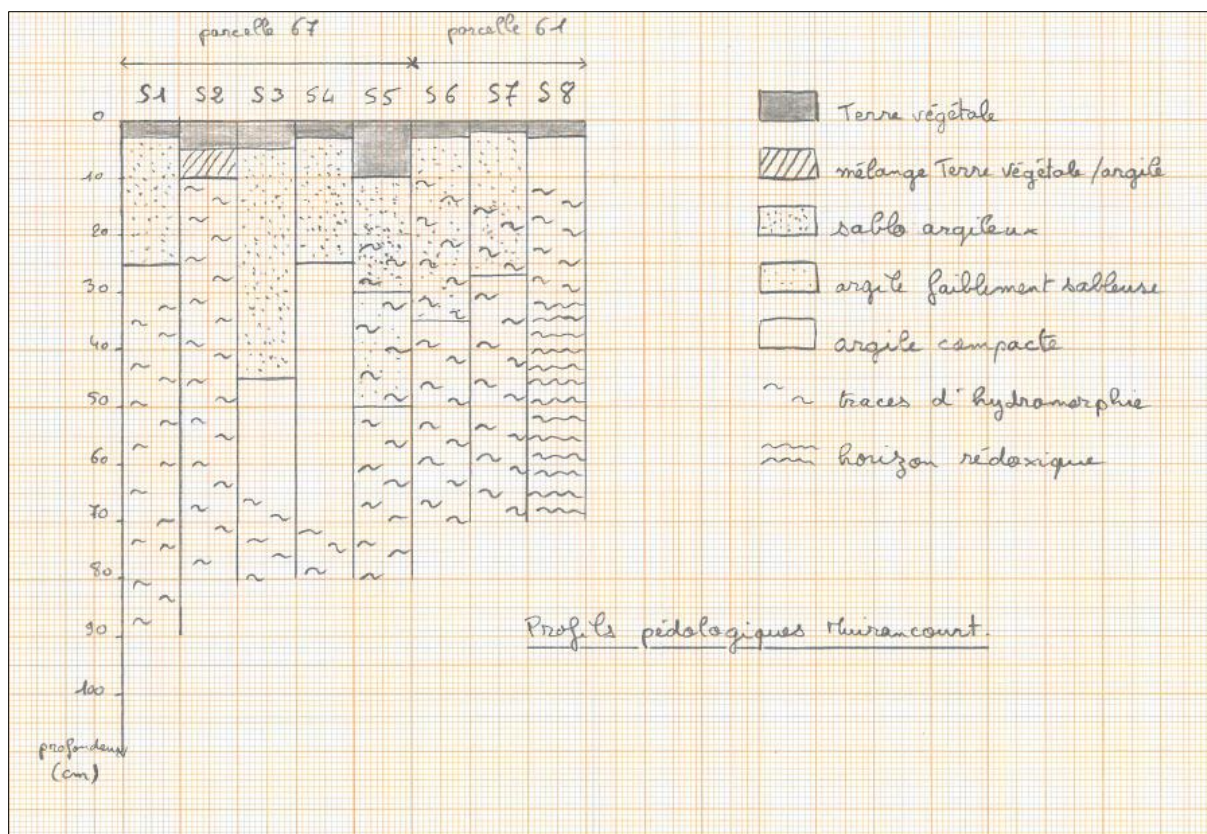 parcelle 67 parcelle 61
S1 S2 S3 S4 S5 S6 S7 S8
0
10
20
30
40
50
60
70
80
90
100
profondeur
(cm)
Terre végétale
mélange Terre végétale/argile
sablo argileux
argile faiblement sableuse
argile compacte
traces d'hydromorphie
horizon rédoxique
Profils pédologiques Muirancourt.